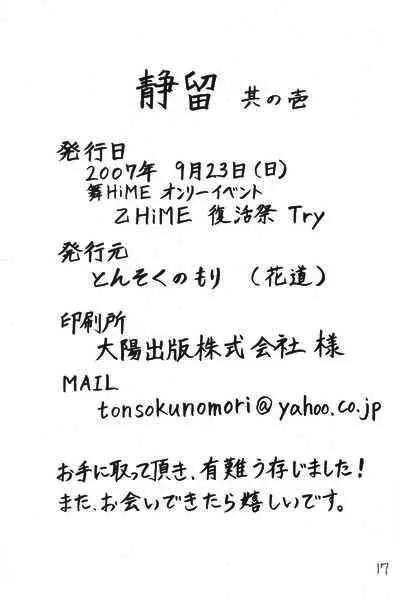 静留 其の壱
発行日
2007年 9月23日(日)
舞HiME オンリーイベント
乙HiME 復活祭 Try
発行元
とんそくのもり (花道)
印刷所
大陽出版株式会社 様
MAIL
tonsokunomori@yahoo.co.jp
お手に取って頂き、有難う存じました!
また、お会いできたら嬉しいです。
17